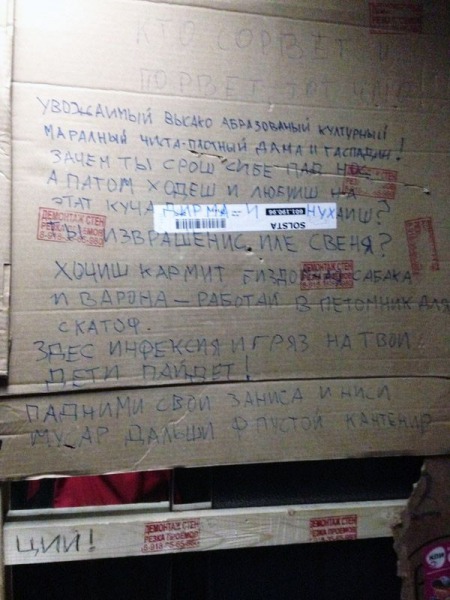 КТО СОРВЁТ И
ПОРВЕТ ТОТ ЧМО
УВОЖАИМЫЙ ВЫСАКО АБРАЗОВАНЫЙ КУЛТУРНЫЙ
МАРАЛНЫЙ ЧИСТА-ПЛОТНЫЙ ДАМА И ГАСПАДИН!
ЗАЧЕМ ТЫ СРОШ СИБЕ ПАД НОС
А ПАТОМ ХОДЕШ И ЛЮБИШ НА
ЭТАТ КУЧА ДИРМА = И НУХАИШ?
SOLSTA
601.190.96
ТЫ ИЗВРАЩЕНИС ИЛЕ СВЕНЯ?
ХОЧИШ КАРМИТ САБАКА
И ВАРОНА – РАБОТАЙ В ПЕТОМНИК ДЛЯ
СКАТОФ.
ЗДЕС ИНФЕКСИЯ И ГРЯЗ НА ТВОИ
ДЕТИ ПАЙДЕТ!
ПАДНИМИ СВОЙ ЗАНИСА И НИСИ
МУСАР ДАЛЬШИ Ф ПУСТОЙ КАНТЕНИР
ЦИЙ!
ДЕМОНТАЖ СТЕН
РЕЗКА ПРОЕМОВ
ДЕМОНТАЖ СТЕН
РЕЗКА ПРОЕМОВ
2